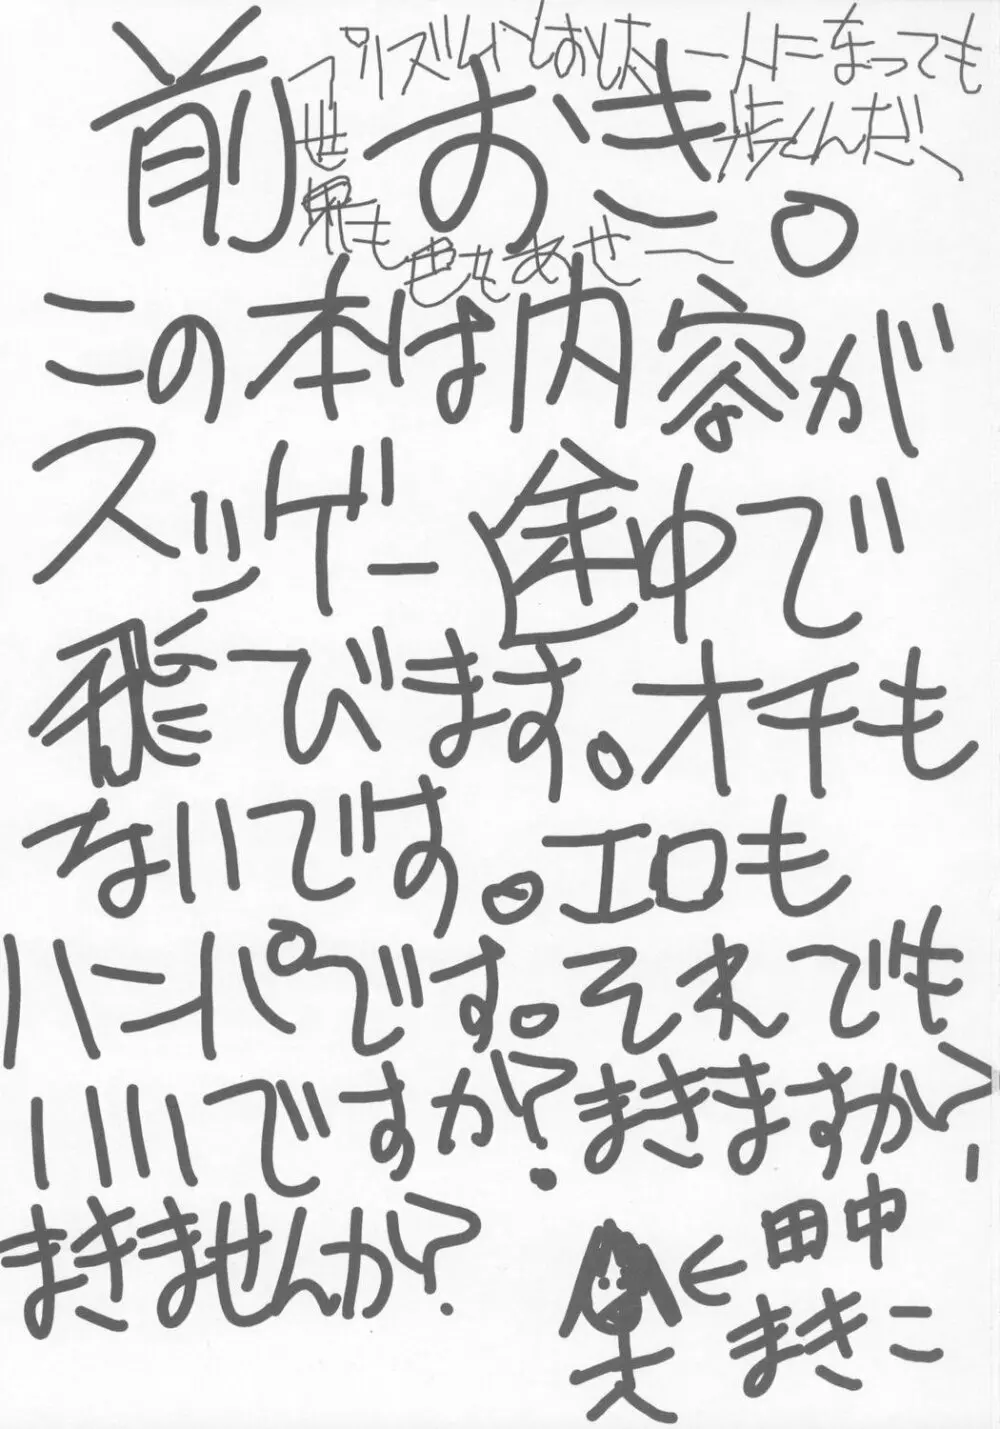 プリズムをとおした 一人になっても
歩くんだ、
世界も
色もあせー
前おき。
この本は内容が
スッゲー途中で
飛びます。オチも
ないです。エロも
ハンパです。それでも
いいですか?まきますか?
まきませんか?
←田中
まきこ